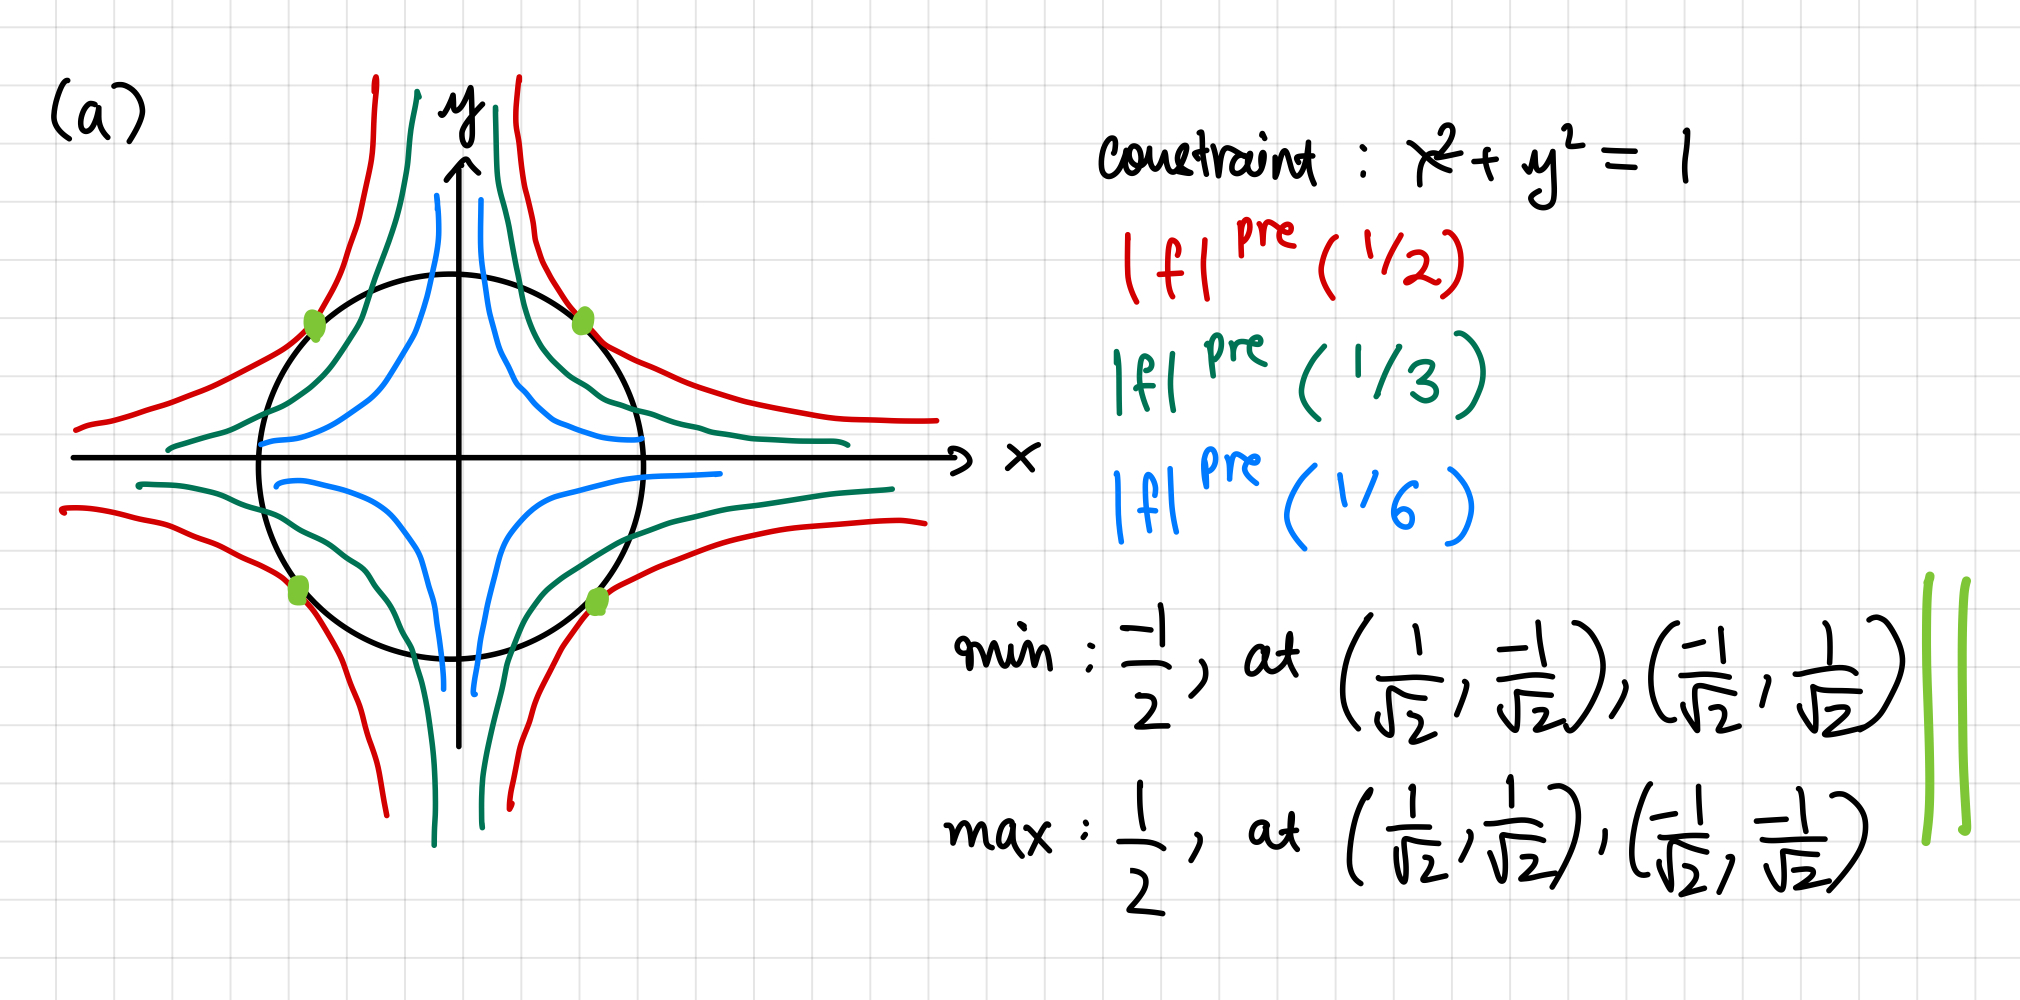 (a)
y
x
constraint : x² + y² = 1
|f|^pre (1/2)
|f|^pre (1/3)
|f|^pre (1/6)
min : -1/2, at (1/√2, -1/√2), (-1/√2, 1/√2)
max : 1/2, at (1/√2, 1/√2), (-1/√2, -1/√2)